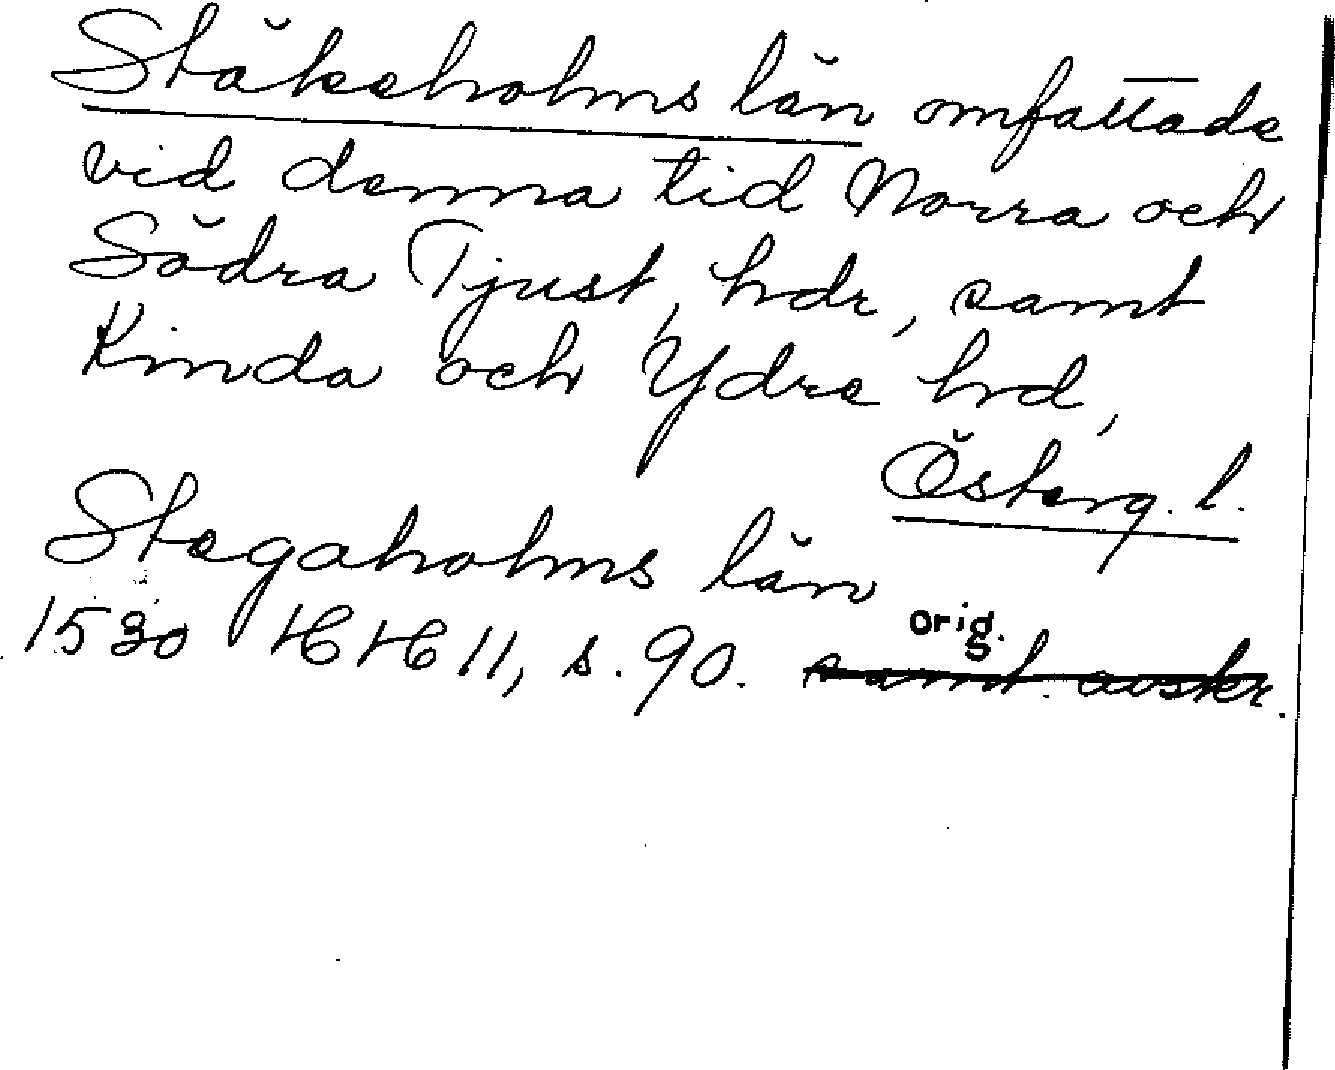 Stäkeholms län omfattade
vid denna tid Norra och
Södra Tjust, hdr, samt
Kinda och Ydre hd,
Österg. l.
Stegaholms län
1530 HH 11, s. 90. orig.
samt. avskr.